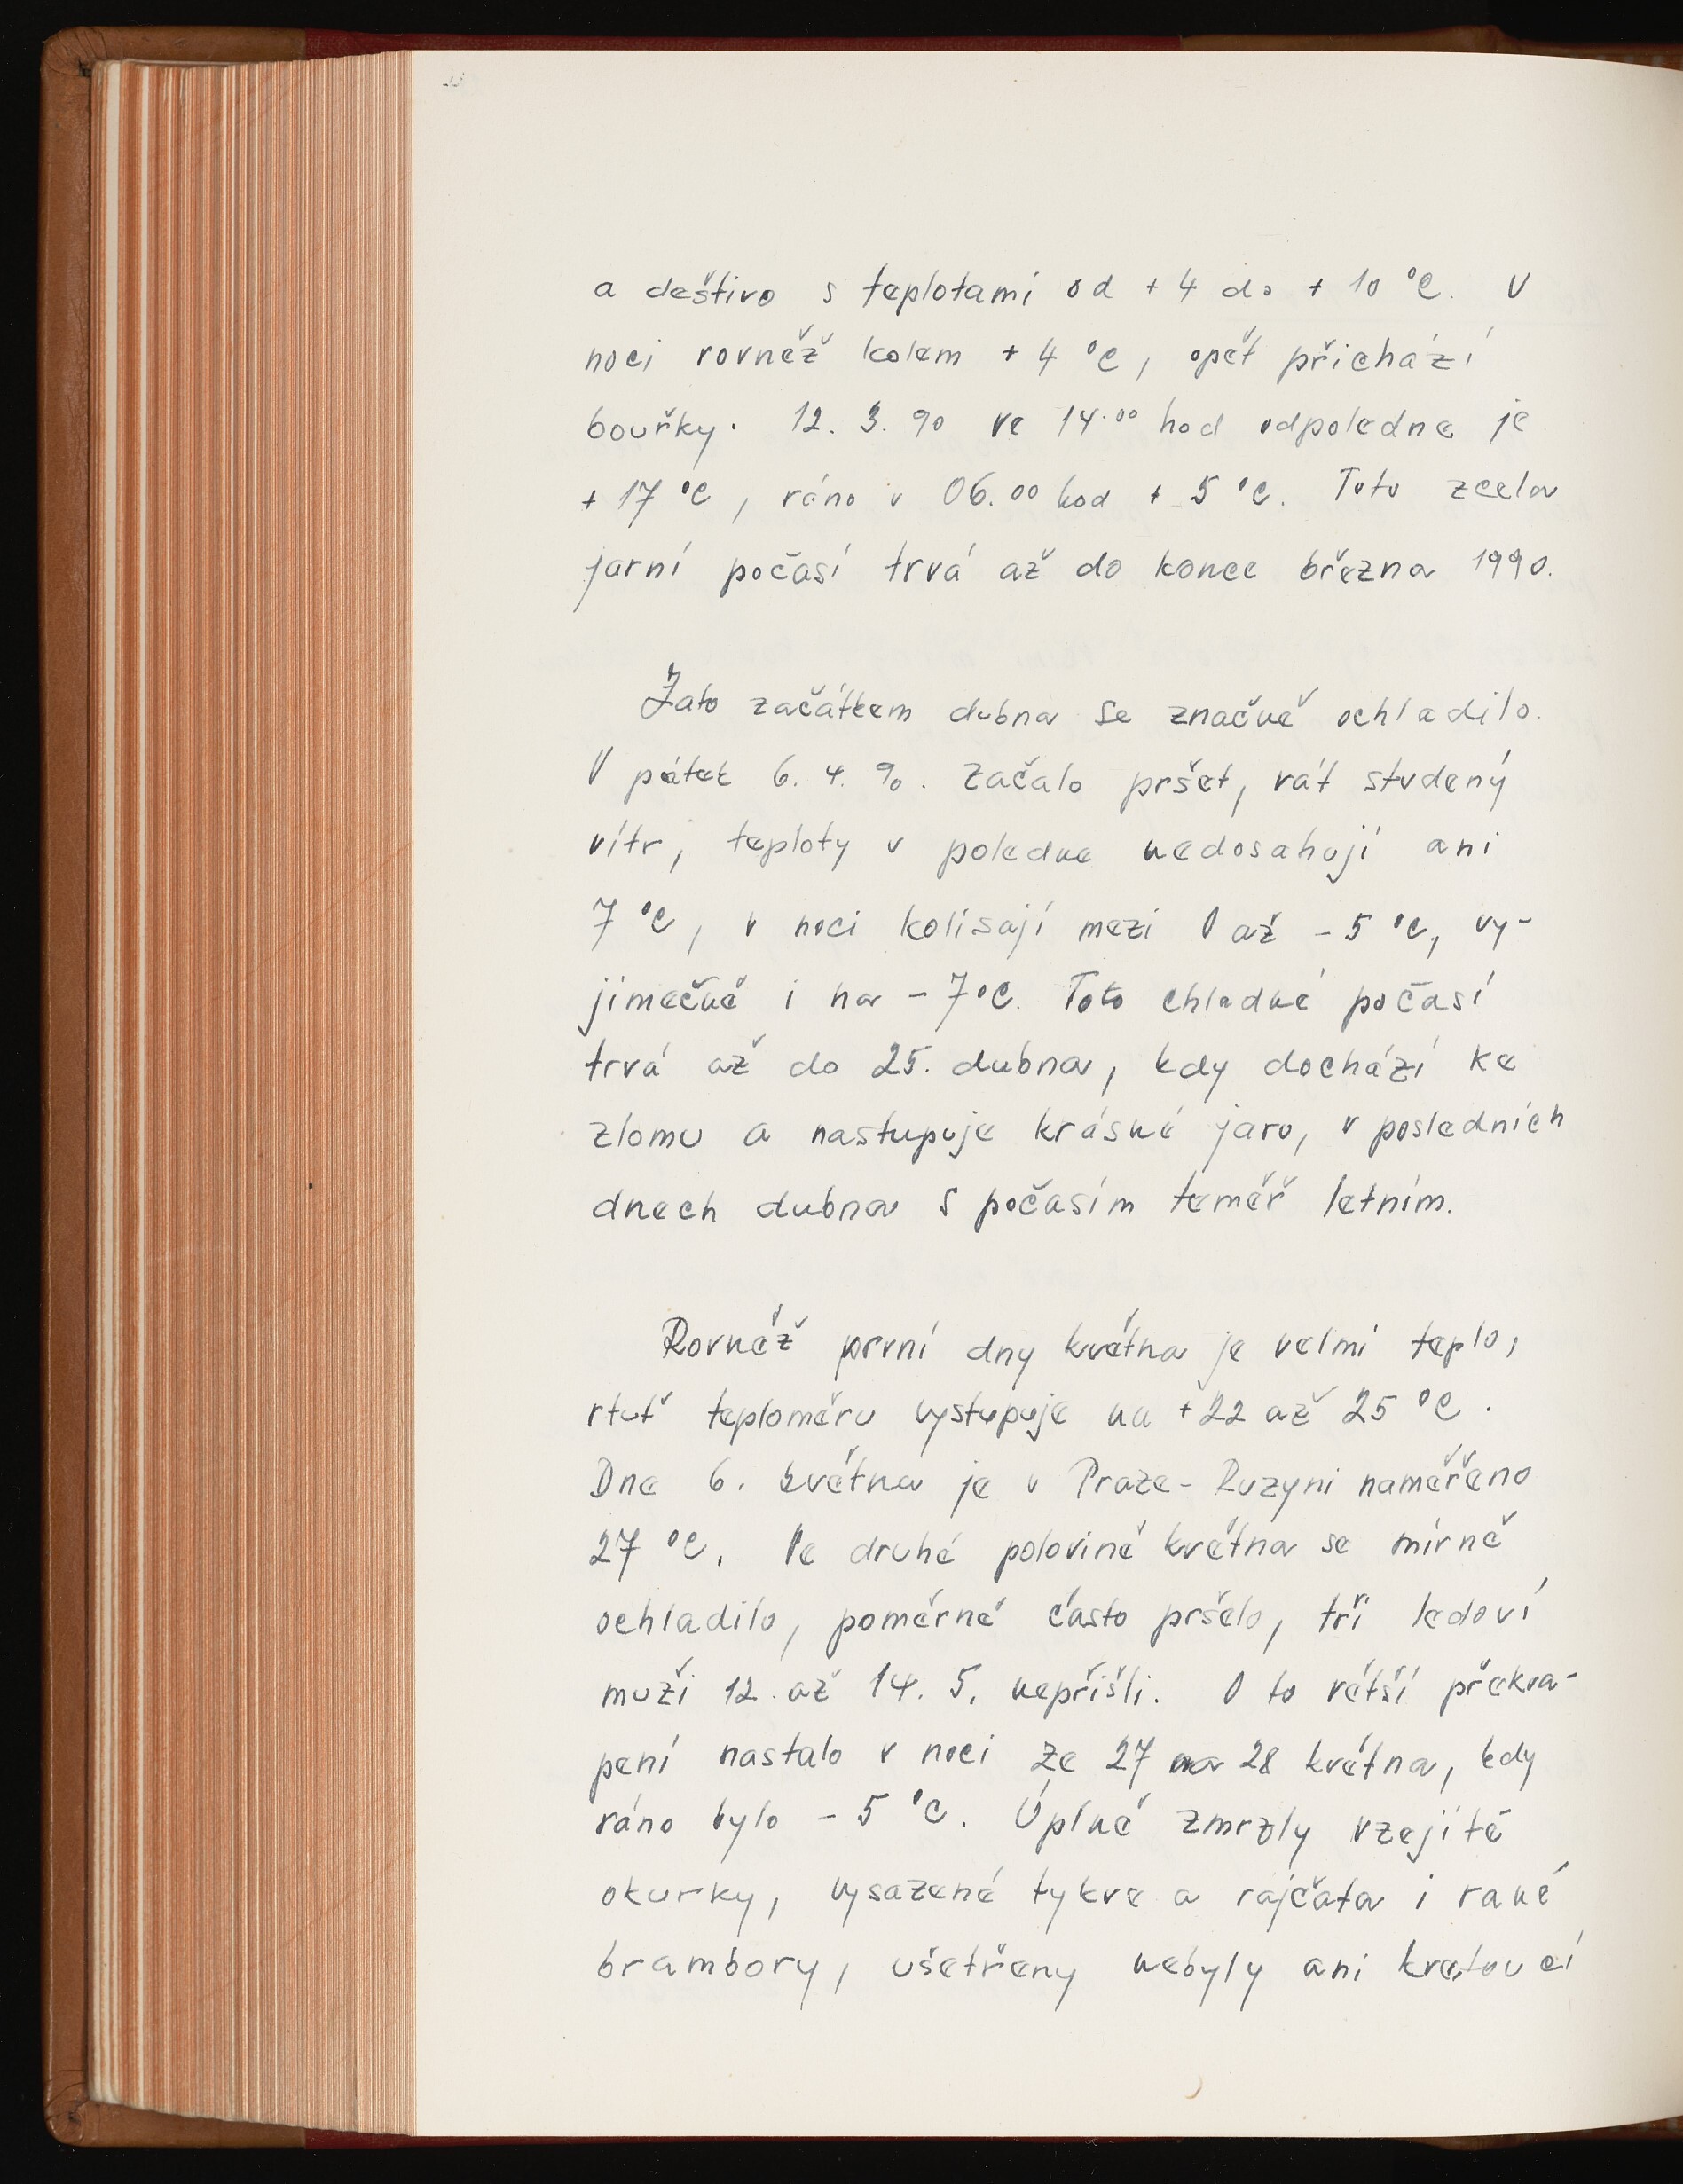 a deštivo s teplotami od + 4 do + 10 °C. V
noci rovněž kolem + 4 °C, opět přichází
bouřky. 12. 3. 90 ve 14.00 hod odpoledne je
+ 17 °C, ráno v 06.00 hod + 5 °C. Toto zcela
jarní počasí trvá až do konce března 1990.
Zato začátkem dubna se značně ochladilo.
V pátek 6. 4. 90. začalo pršet, vát studený
vítr, teploty v poledne nedosahují ani
7 °C, v noci kolísají mezi 0 až - 5 °C, vy-
jímečně i na - 7 °C. Toto chladné počasí
trvá až do 25. dubna, kdy dochází ke
zlomu a nastupuje krásné jaro, v posledních
dnech dubna s počasím teměř letním.
Rovněž první dny května je velmi teplo,
rtuť teploměru vystupuje na + 22 až 25 °C.
Dne 6. května je v Praze - Ruzyni naměřeno
27 °C. Ve druhé polovině května se mírně
ochladilo, poměrně často pršelo, tři ledoví
muži 12. až 14. 5. nepřišli. O to větší překva-
pení nastalo v noci ze 27 na 28 května, kdy
ráno bylo - 5 °C. Úplně zmrzly vzejité
okurky, vysazené tykve a rajčata i rané
brambory, ušetřeny nebyly ani kvetoucí